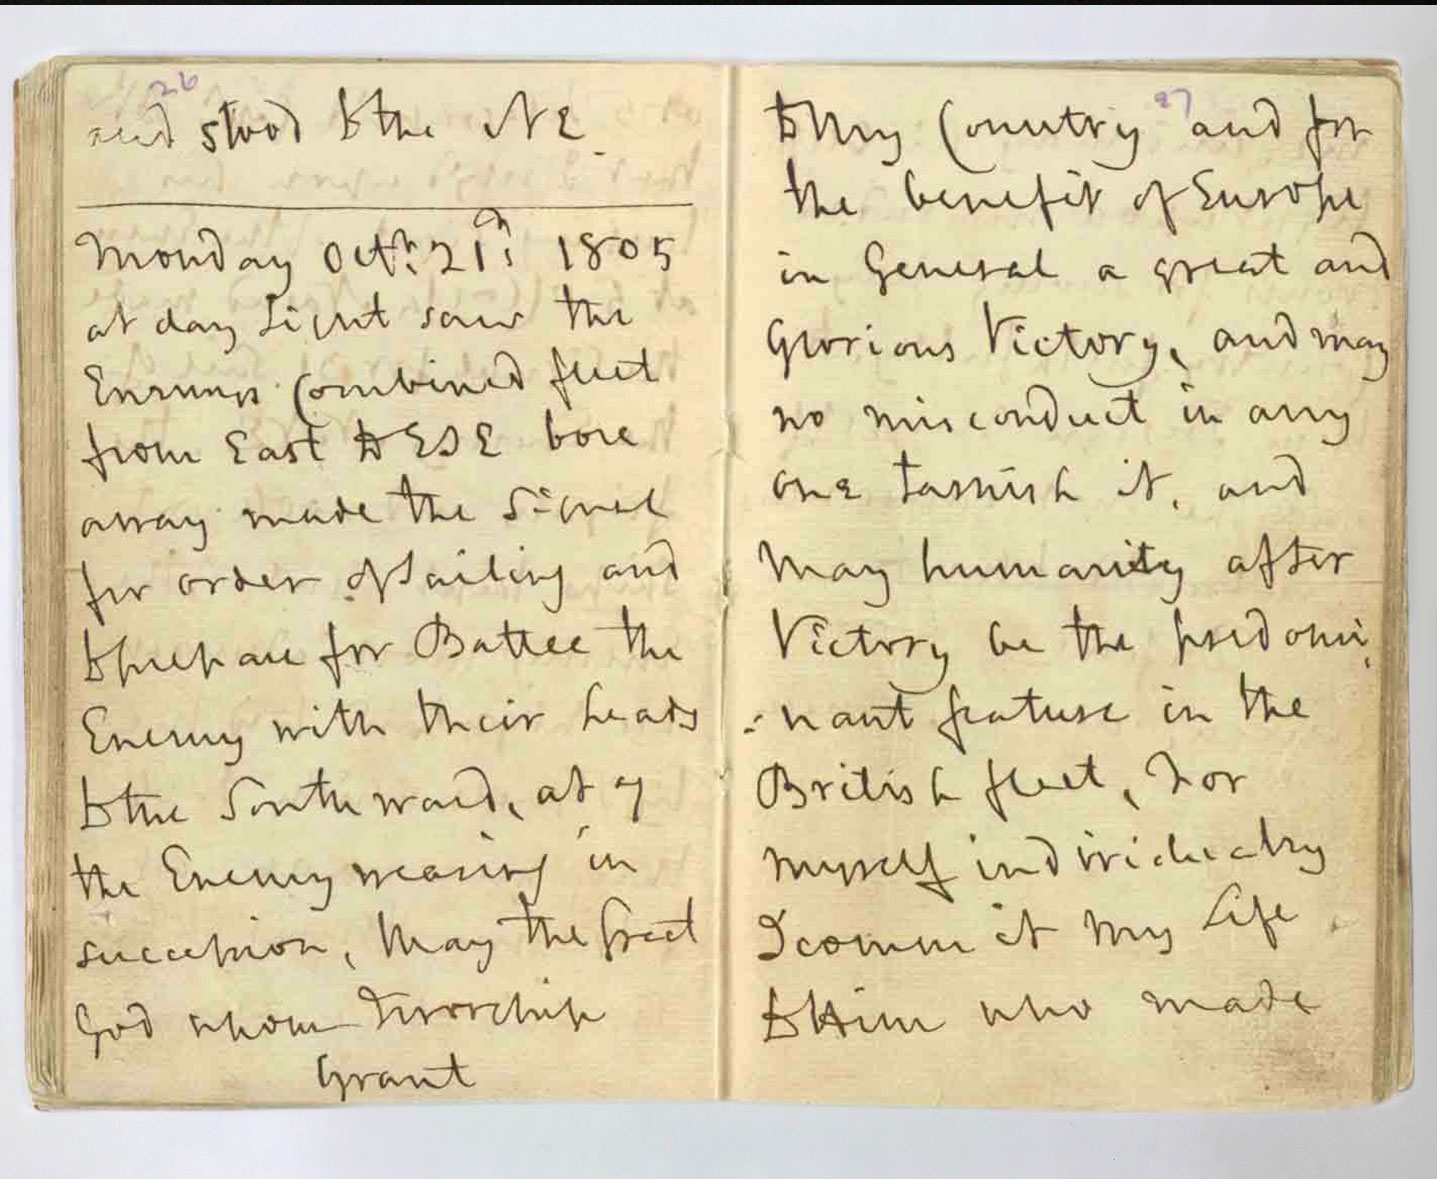 26
and stood to the NE.
Monday Octr. 21st 1805
at day Light saw the
Enemys Combined fleet
from East to ESE bore
away made the Signal
for order of Sailing and
to prepare for Battle the
Enemy with their heads
to the Southward, at 7
the Enemy wearing in
succession, May the Great
God whom I worship
Grant
27
to my Country and for
the benefit of Europe
in General a great and
Glorious Victory, and may
no misconduct in any
one tarnish it, and
may humanity after
Victory be the predomi
-nant feature in the
British fleet, For
myself individually
I commit my Life
to Him who made